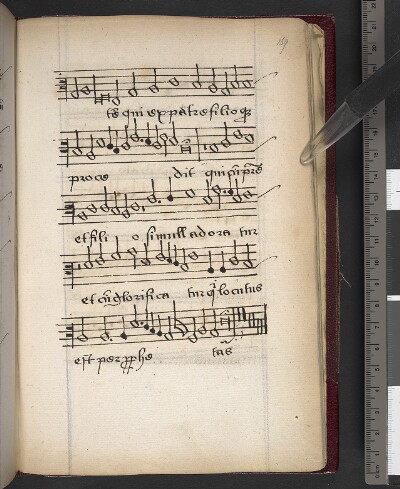 tē qui ex patre filioqz
proce dit qui cū pr̄e
et fili o simul adora tur
et cōglorifica tur q̄ locutus
est per pphe tas